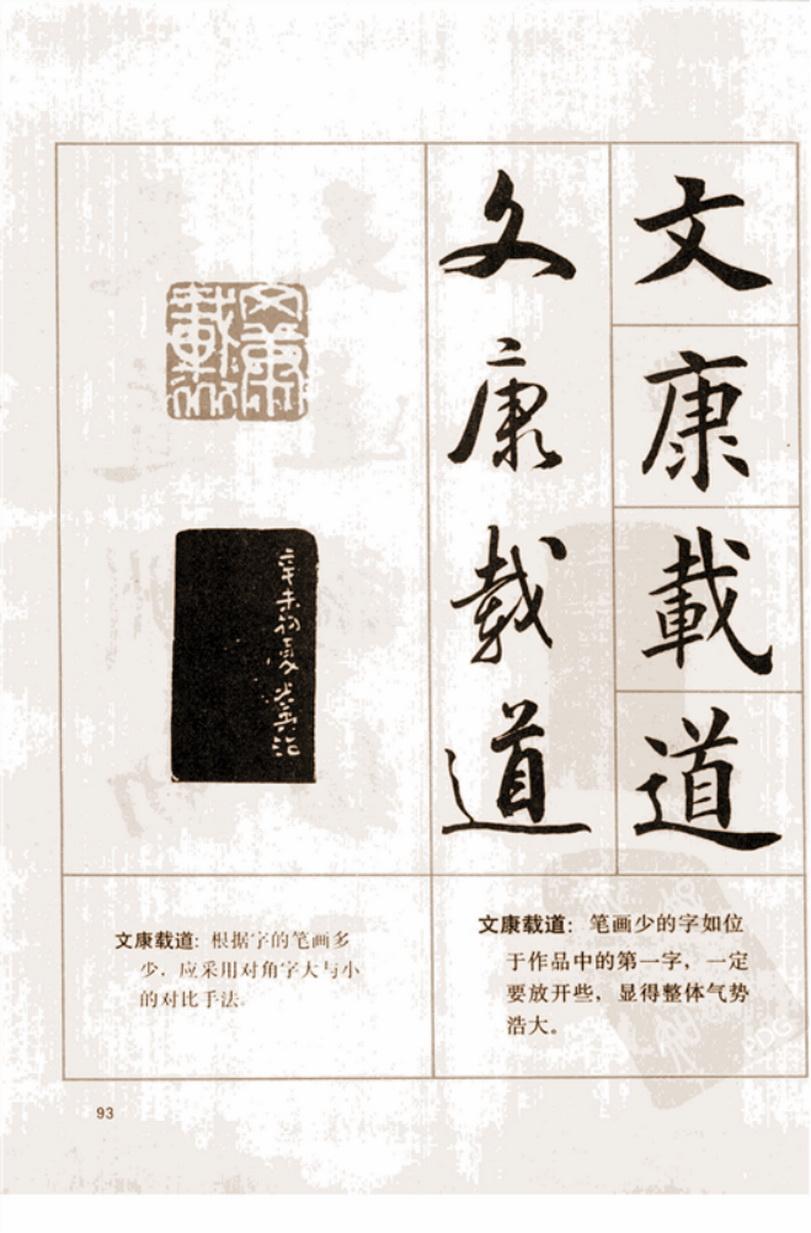 文
康
載
道
文康载道
文康
載道
辛未初夏
文康载道：笔画少的字如位
于作品中的第一字，一定
要放开些，显得整体气势
浩大。
文康载道：根据字的笔画多
少，应采用对角字大与小
的对比手法。
93
PDG